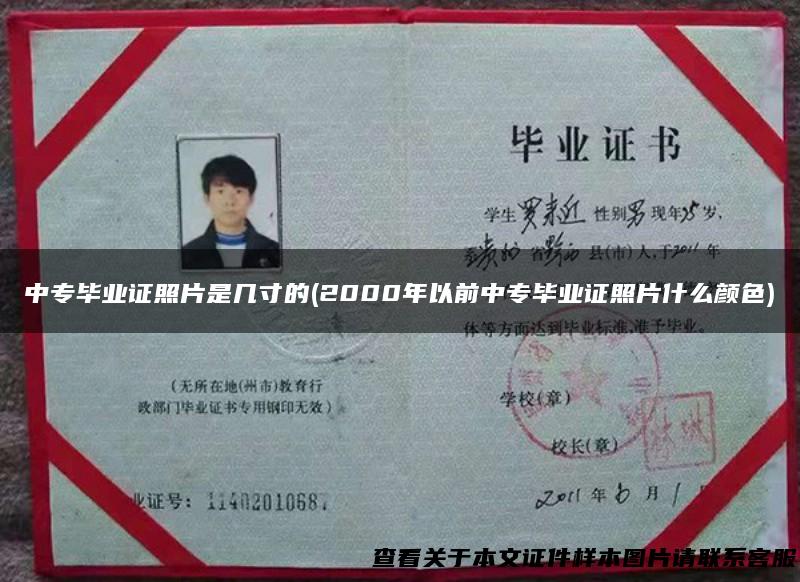 毕业证书
学生罗来近 性别男现年25岁,
省黔西县(市)人,于2011年
中专毕业证照片是几寸的(2000年以前中专毕业证照片什么颜色)
体等方面达到毕业标准,准予毕业。
(无所在地(州市)教育行
政部门毕业证书专用钢印无效)
学校(章)
校长(章)
业证号: 11402010687
2011年6月1
查看关于本文证件样本图片请联系客服